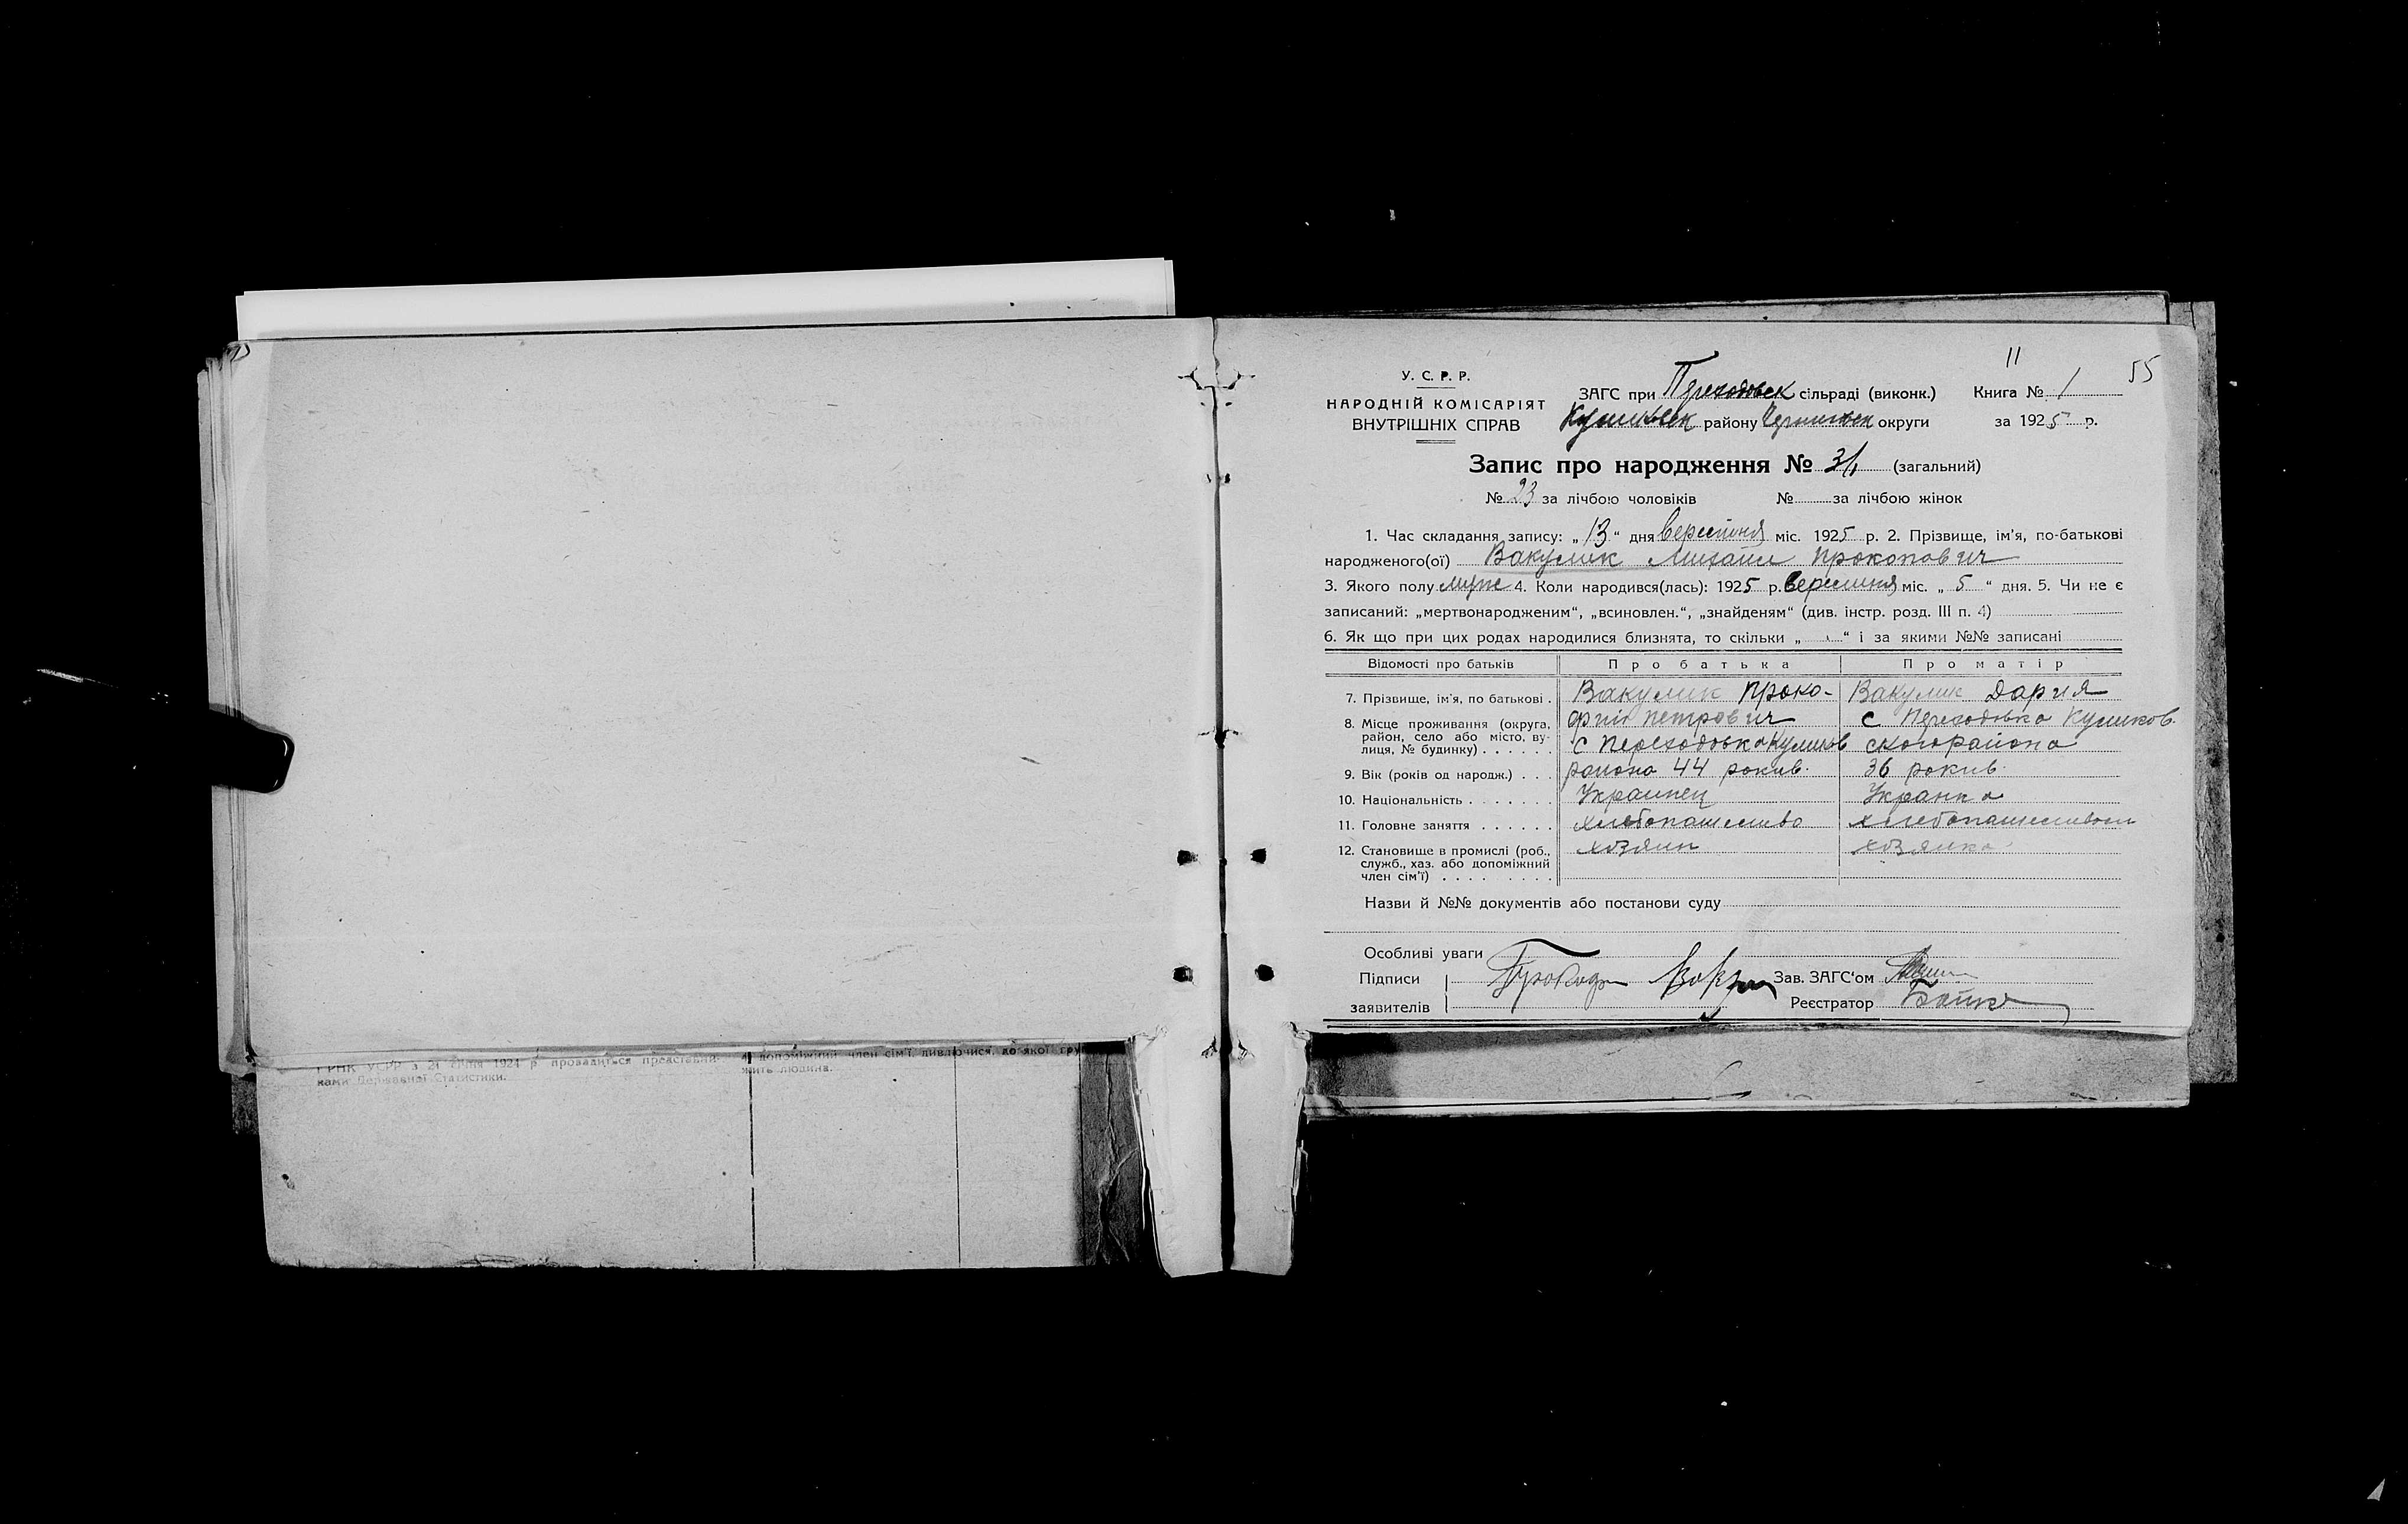 11
55
У. С. Р. Р.
НАРОДНІЙ КОМІСАРІЯТ
ВНУТРІШНІХ СПРАВ
ЗАГС при Переходовск сільраді (виконк.)
Куликовск району Черниговск округи
Книга № 1
за 1925 р.
Запис про народження № 31 (загальний)
№ 23 за лічбою чоловіків № за лічбою жінок
1. Час складання запису: „13“ дня вересптня міс. 1925 р. 2. Прізвище, ім’я, по-батькові
народженого(ої) Вакулик Михаил Прокопович
3. Якого полу муже 4. Коли народився(лась): 1925 р. вересиня міс. „5“ дня. 5. Чи не є
записаний: „мертвонародженим“, „всиновлен.“, „знайденям“ (див. інстр. розд. III п. 4)
6. Як що при цих родах народилися близнята, то скільки „ “ і за якими №№ записані
Відомості про батьків Про батька Про матір
7. Прізвище, ім’я, по батькові . Вакулик Проко- Вакулик Дария
8. Місце проживання (округа, район, село або місто, вулиця, № будинку) . . . . . .
фпій петрович с Переходовка Куликов
с Переходовка Куликов ского района
9. Вік (років од народж.) . . . района 44 рокив. 36 рокив.
10. Національність . . . . . . . Украинец Укранка
11. Головне заняття . . . . . . хлебопашество хлебопашеством
12. Становище в промислі (роб., служб., хаз. або допоміжний член сім’ї) . . . . . . . . хозяин хозяика
Назви й №№ документів або постанови суду
Особливі уваги
Підписи
заявителів
Зав. ЗАГС‘ом
Реєстратор
РНК УСРР з 21 січня 1924 р провадиться представни-
ками Державної Статистики.
й допоміжний член сім’ї, дивлючися, до якої гру
жить людина.